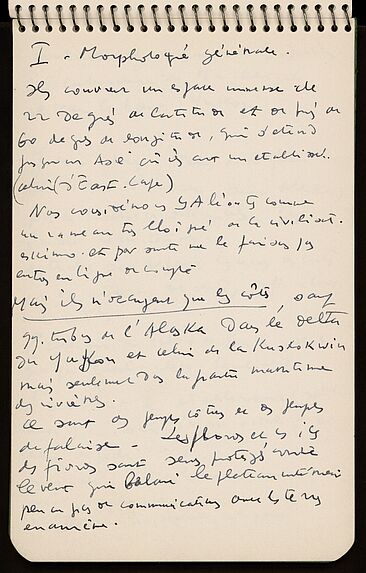 I - Morphologie générale.
Ils couvrent un espace immense de
22 degrés de latitude et de près de
60 degrés de longitude, qui s'étend
jusqu'en Asie où ils ont un établiss.
(celui d'East-Cape)
Nous considérons les Aléouts comme
un rameau très éloigné de la civilisat.
eskimo et par suite ne le faisons pas
entrer en ligne de compte
Mais ils n'occupent que les côtes, sauf
qq. tribus de l'Alaska dans le delta
du Yukon et celui de la Kuskokwim
mais seulement dans la partie maritime
des rivières.
Ce sont des peuples côtiers et des peuples
de falaise - Les fiords et les îles
des fiords sont seuls protégés contre
le vent qui balaie le plateau intérieur
peu ou pas de communications avec les terres
en arrière.